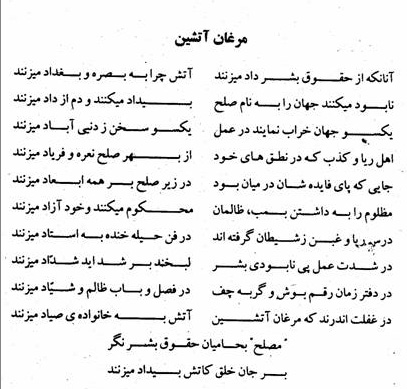 مرغان آتشین
آنانکه از حقوق بشر داد میزنند آتش چرا به بصره و بغداد میزنند
نابود میکنند جهان را به نام صلح بیداد میکنند و دم از داد میزنند
یکسو جهان خراب نمایند در عمل یکسو سخن ز دنیی آباد میزنند
اهل ریا و کذب که در نطق های خود از بهر صلح نعره و فریاد میزنند
جایی که پای فایده شان در میان بود در زیر صلح بر همه ابعاد میزنند
مظلوم را به داشتن بمب، ظالمان محکوم میکنند و خود آزاد میزنند
درس ریا و غبن ز شیطان گرفته اند در فن حیله خنده به استاد میزنند
در شدت عمل پی نابودی بشر لبخند بر شد اید شدّاد میزنند
در دفتر زمان رقم بوش و گربه چف در فصل و باب ظالم و شیّاد میزنند
در غفلت اندرند که مرغان آتشین آتش به خانواده ی صیاد میزنند
"مصلح" بحامیان حقوق بشر نگر
بر جان خلق کاتش بیداد میزنند